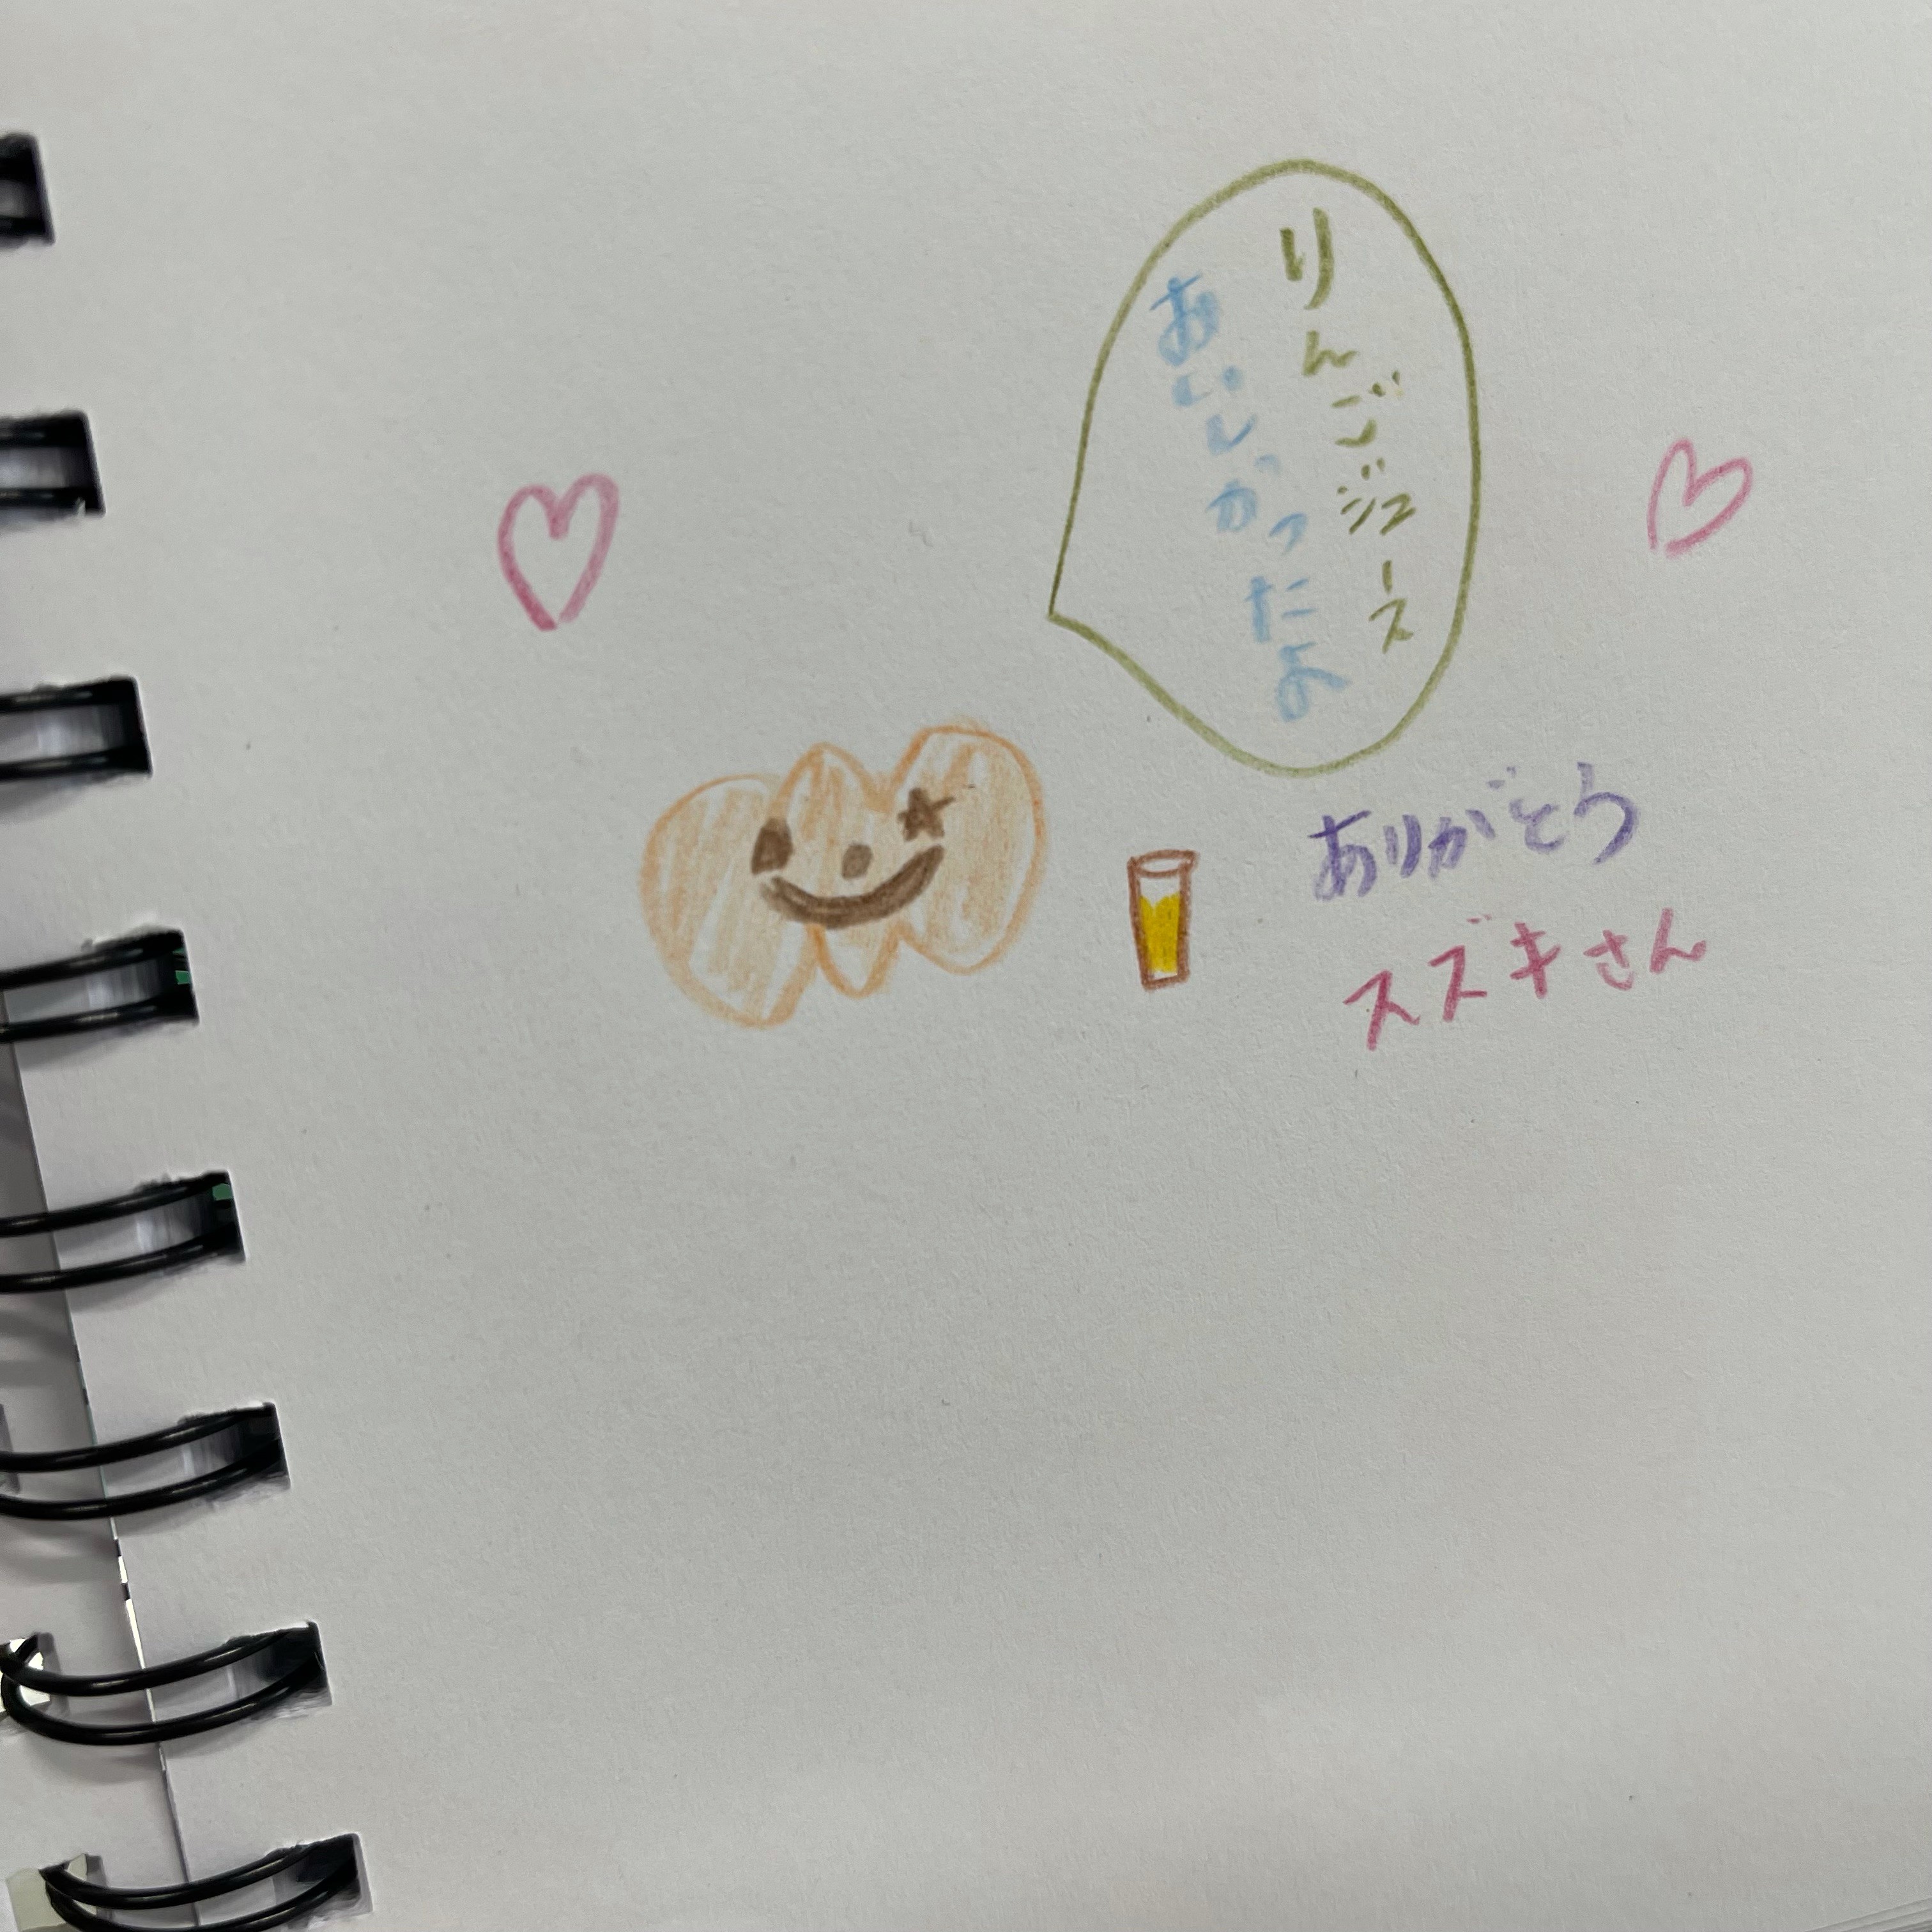 りんごジュース
おいしかったよ
ありがとう
スズキさん